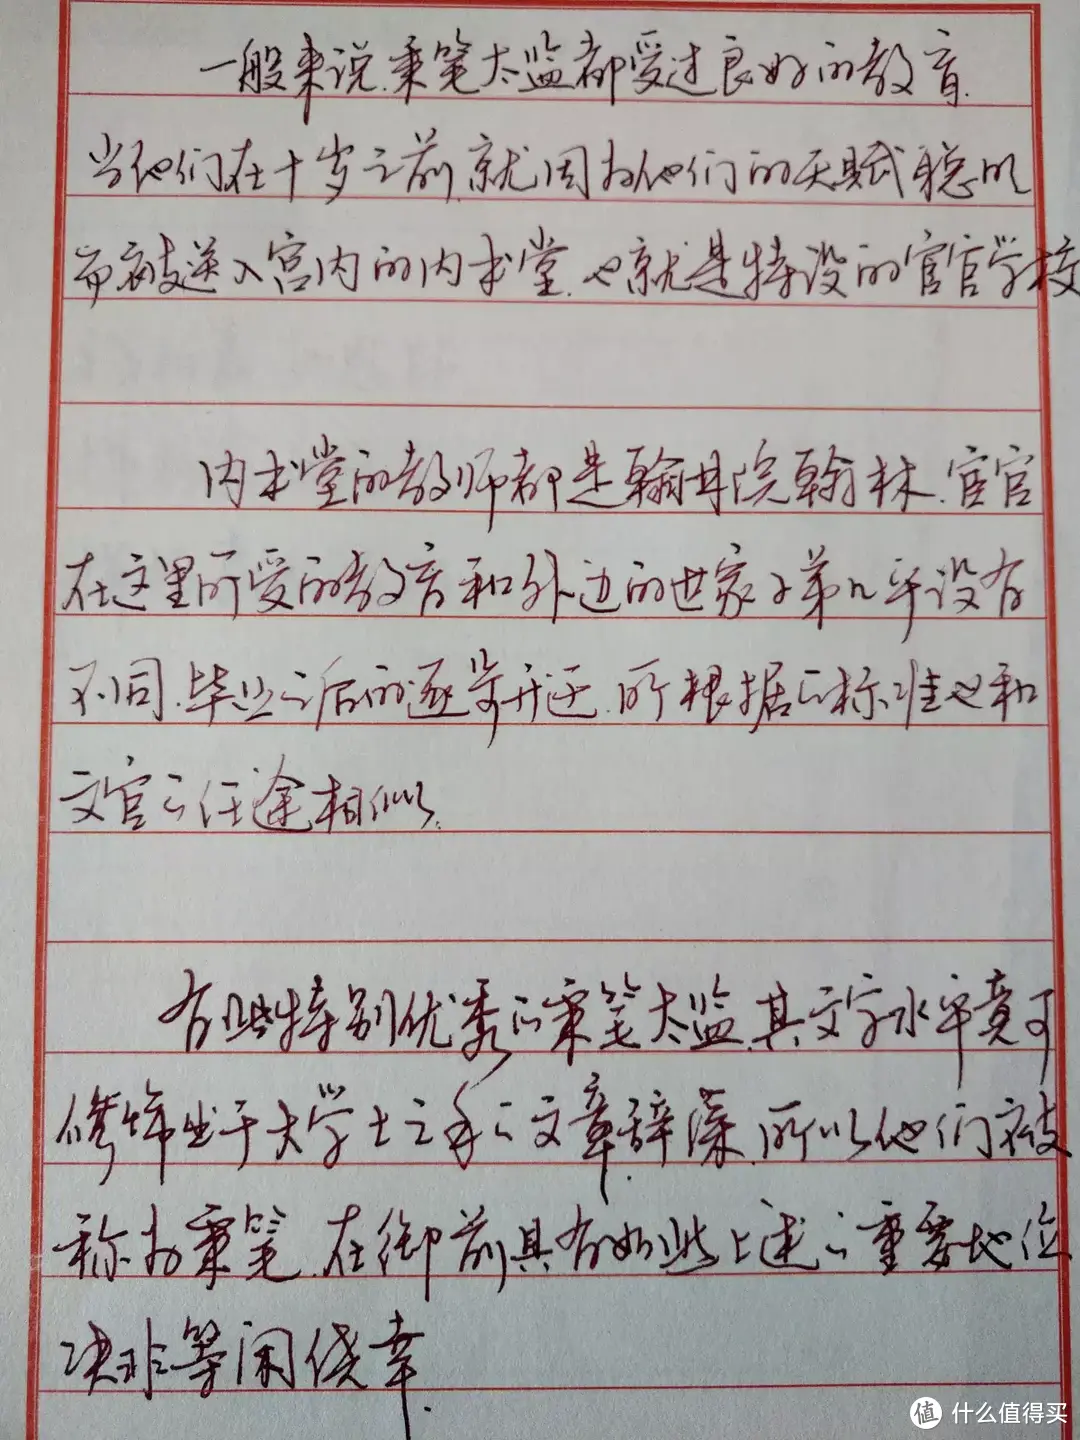 一般来说.秉笔太监都受过良好的教育.
当他们在十岁之前,就因为他们的天赋聪明
而被送入宫内的内书堂.也就是特设的宦官学校
内书堂的教师都是翰林院翰林.宦官
在这里所受的教育和外边的世家子弟几乎没有
不同.毕业之后的逐步升迁.所根据的标准也和
文官的仕途相似.
有些特别优秀的秉笔太监.其文字水平竟可
修饰出于大学士之手的文章辞藻.所以他们被
称为秉笔.在御前具有如此上述的重要地位
决非等闲侥幸.
值 什么值得买